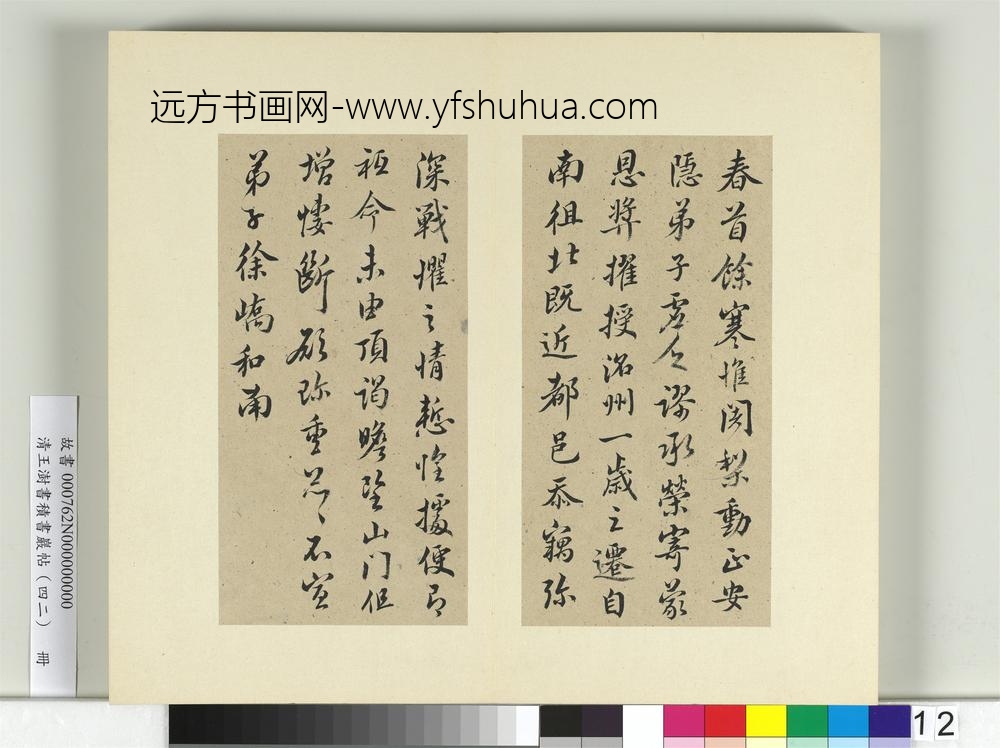 远方书画网-www.yfshuhua.com
春首餘寒惟闍梨動止安
隱弟子虛乏謬承榮寄蒙
恩獎擢授洺州一歲之遷自
南徂北既近都邑忝竊弥
深戰懼之情慙惶據便即
祗命未由頂謁瞻望山門但
增悽斷願珍重怱〻不宣
弟子徐嶠和南
故書 000762N000000000
清王澍書積書巖帖(四二) 冊
12